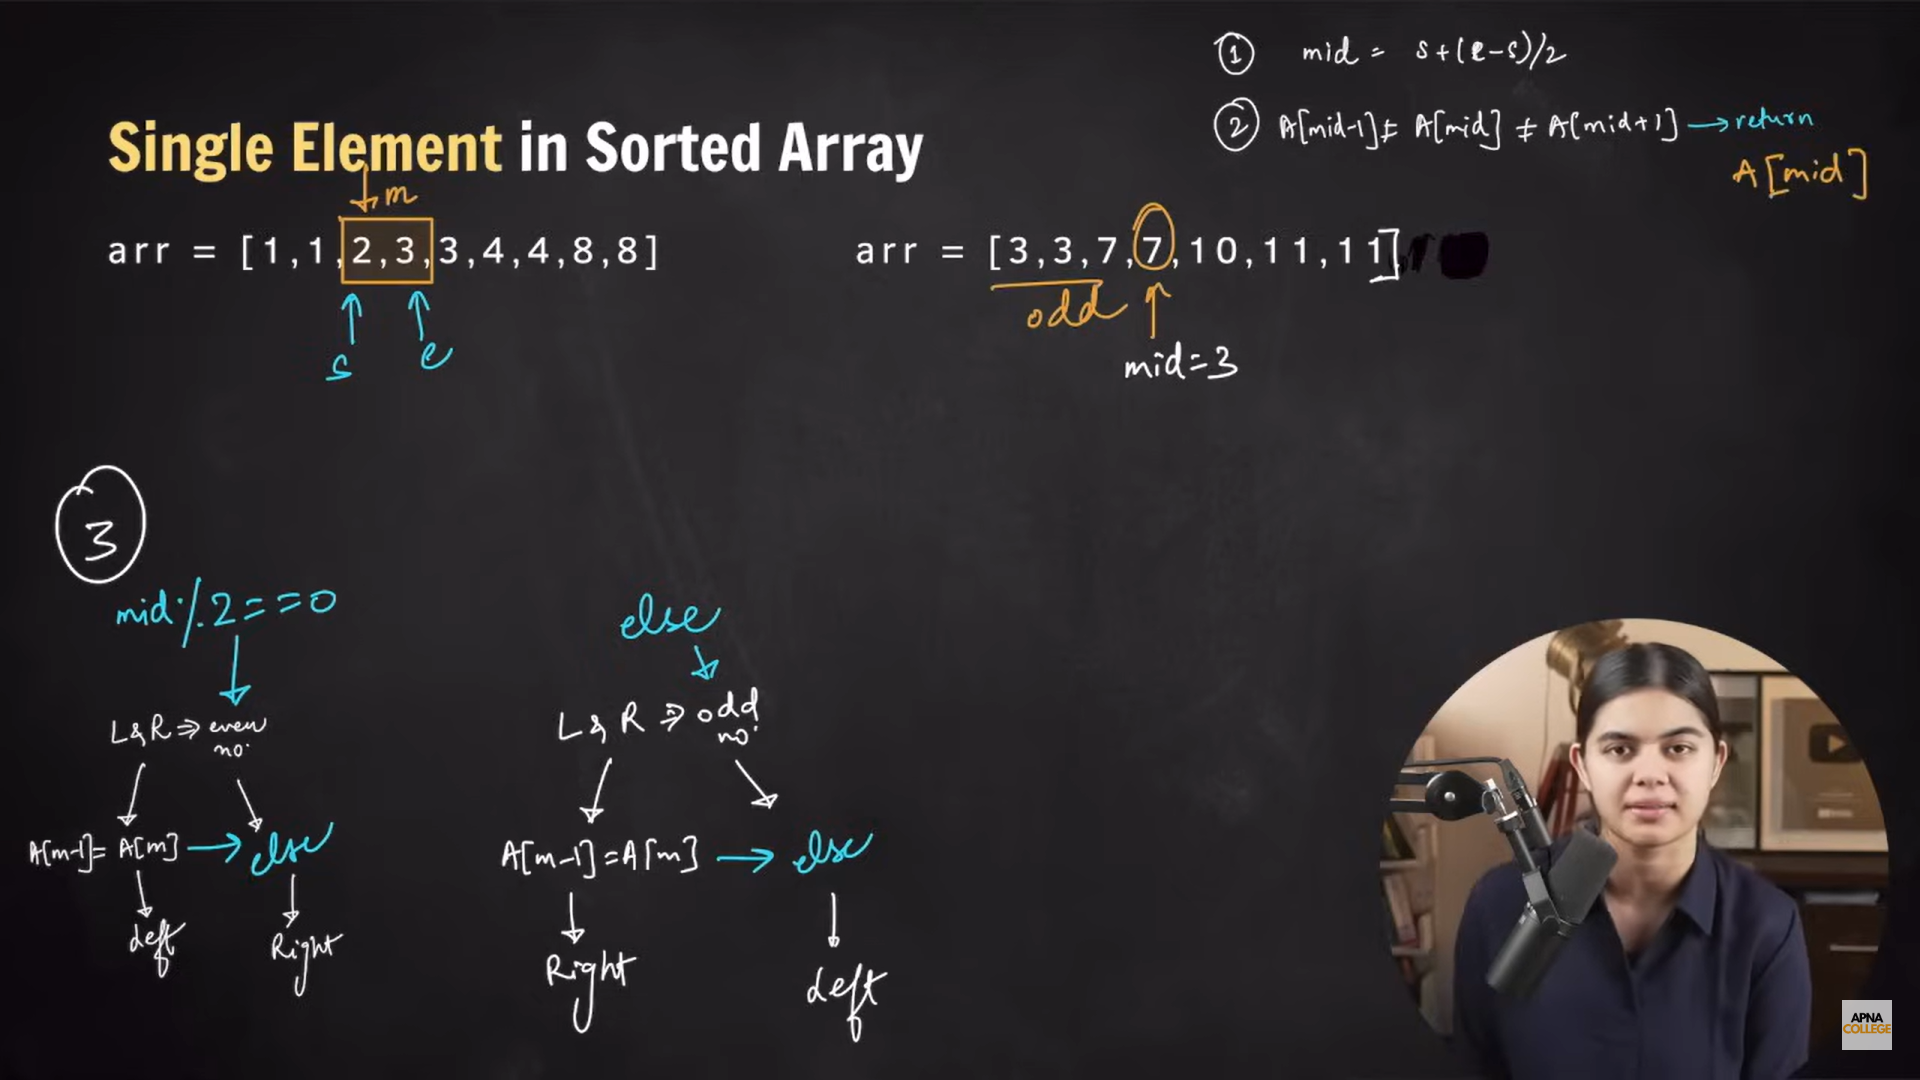 ① mid = s+(e-s)/2
② A[mid-1] ≠ A[mid] ≠ A[mid+1] → return
A[mid]
Single Element in Sorted Array
m
arr = [1,1,2,3,3,4,4,8,8]
s
e
arr = [3,3,7,7,10,11,11]
odd
mid=3
③
mid%2==0
L & R ⇒ even
no.
A[m-1]= A[m] → else
left
Right
else
L & R ⇒ odd
no.
A[m-1]=A[m] → else
Right
left
APNA
COLLEGE